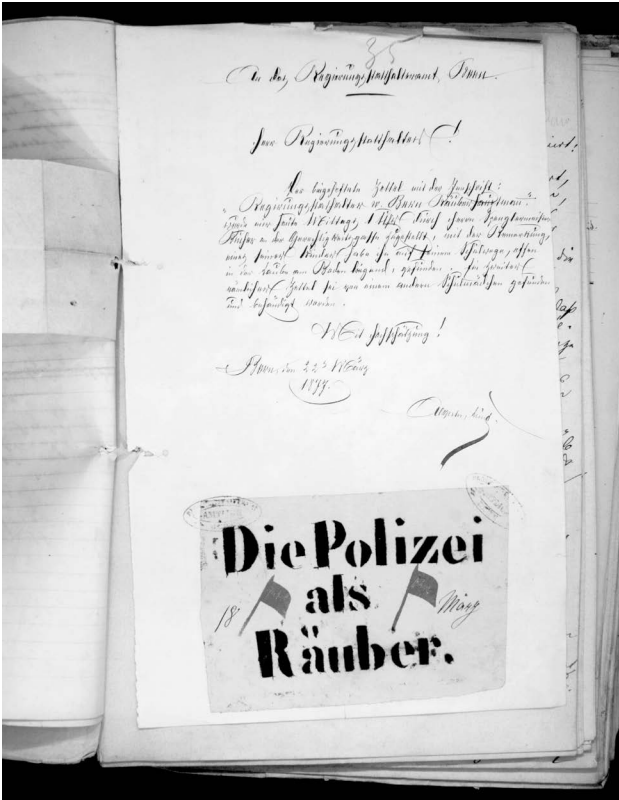 35
An das Regierungsstatthalteramt, Bern.
Herr Regierungsstatthalter!
Der beigeheftete Zettel mit der Inschrift:
„Regierungsstatthalter v. Bern Räuberhauptmann."
wurde mir heute Mittags 1 Uhr durch Herrn
an der Gerechtigkeitsgasse zugestellt, mit der Bemerkung,
eines seiner Kinder habe ihn auf seinem Schulwege, offen
in der Laube am Boden liegend, gefunden. Ein zweiter
Zettel sei von einem andern Schulmädchen gefunden
und behändigt worden.
Mit Hochschätzung!
Bern, den 22. März
1877.
Die Polizei
18 als März
Räuber.